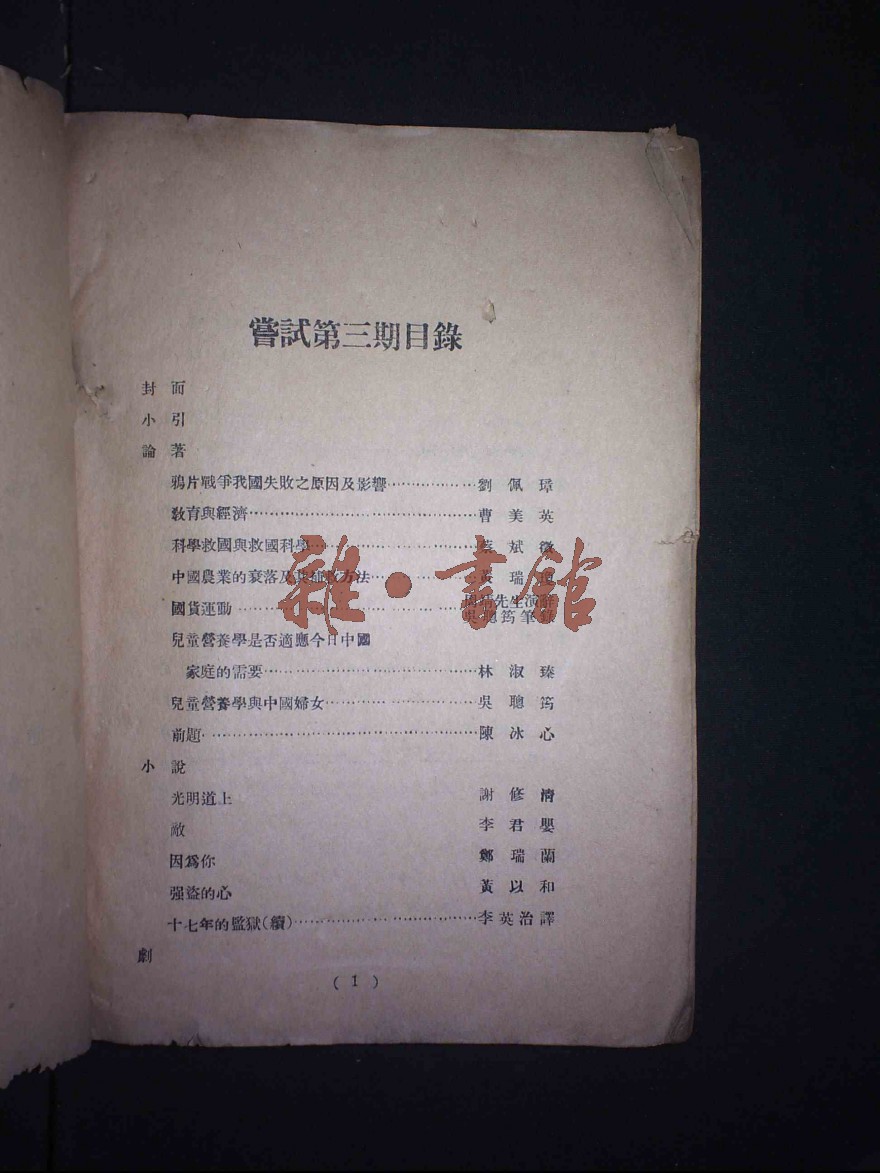 嘗試第三期目錄
封面
小引
論著
鴉片戰爭我國失敗之原因及影響……………劉佩璋
敎育與經濟……………曹美英
科學救國與救國科學……………蔡斌徵
中國農業的衰落及其補救方法……………黃瑞
國貨運動……………先生演
吳聰筠筆錄
兒童營養學是否適應今日中國
家庭的需要……………林淑臻
兒童營養學與中國婦女……………吳聰筠
前題……………陳冰心
小說
光明道上 謝修淸
敵 李君嬰
因爲你 鄭瑞蘭
强盜的心 黃以和
十七年的監獄(續)……………李英治譯
劇
(1)
雜·書館